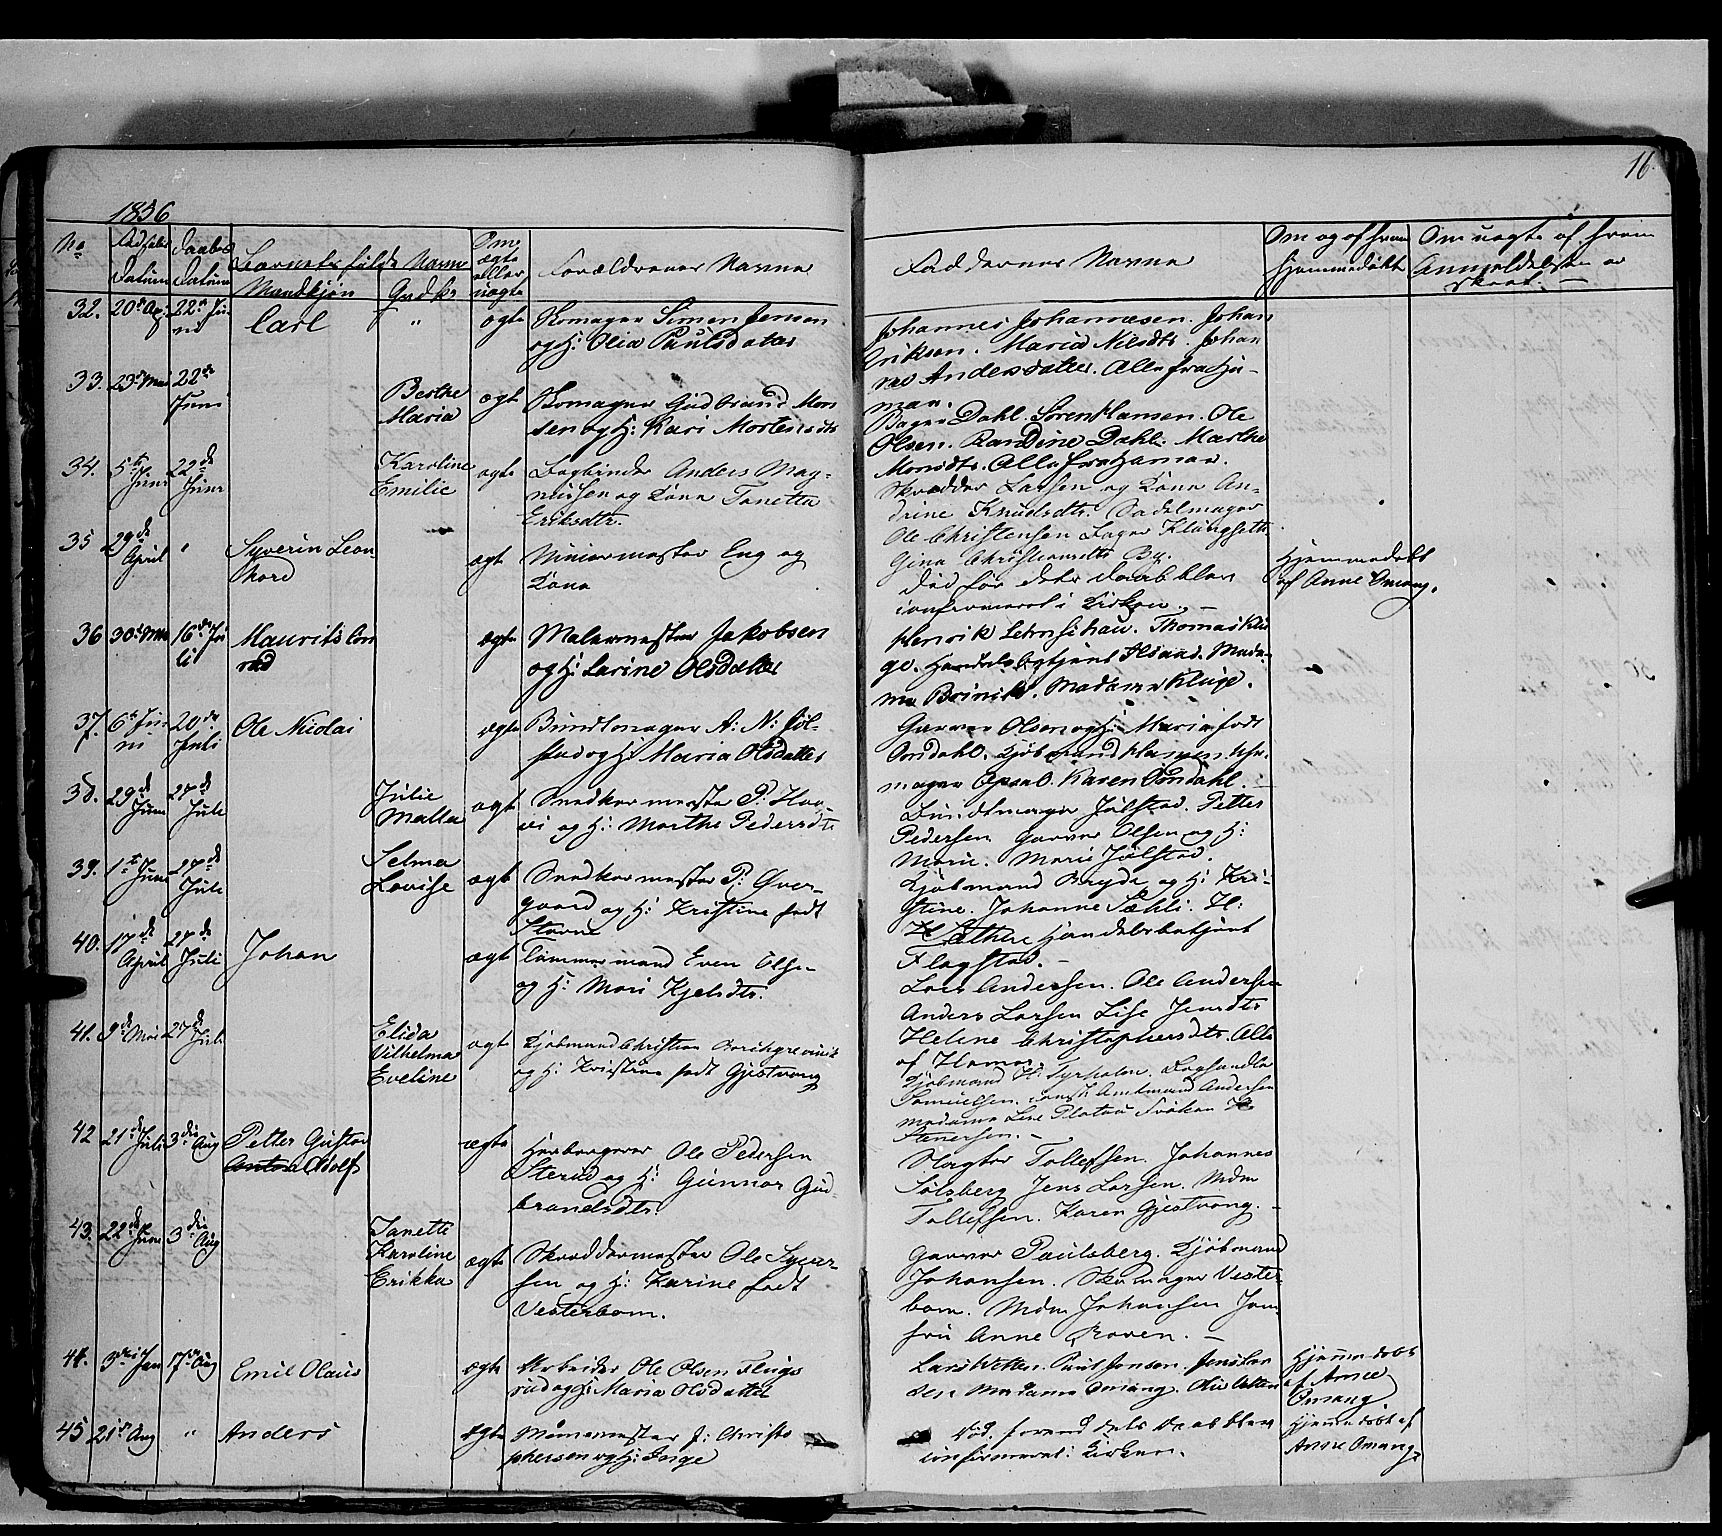 16.
1856
No
Fødsels
Datum
Daabs
Datum
Barnets fulde Navn
Mandkjøn
Qvdk.
Om
ægte
eller
uægte
Forældrenes Navne
Faddernes Navne
Om og af hvem
hjemmedøbt
Om uægte af hvem
Anmeldelsen er
skeet. —
32. 20de Ap. 22de Ju-
ni
Carl
"
ægte
Skomager Simen Jensen
og H: Olia Paulsdatter
Johannes Johannesen. Johan
Eriksen. Maria Nilsdtr. Johan
ne Andersdatter. Alle fra Ha-
mar.
33. 23de Mai 22de
Juni
Berthe
Maria
ægte
Gudbrand Mon
sen og H: Kari Mortensdtr
Dahl. Søren Hansen. Ole
Olsen. Randine Dahl. Marthe
Monsdtr. Alle fra Hamar.
34. 5te
Juni
22de
Juni
Karoline
Emilie
ægte
Bogbinder Anders Mag-
nussen og Kone Tanetta
Eriksdtr.
Skrædder Larsen og Kone An-
drine Knudsdtr. Sadelmager
Ole Christensen Lager
Gina Christiansdtr By.
35 29de
April
"
Syverin Leon
hard
ægte
Murermester Eng og
Kone
Død før dets Daab blev
confirmeret i Kirken. —
Hjemmedøbt
af Anne Omang.
36 30de Mai 16de Ju
li
Maurits Con
rad
ægte
Malermester Jakobsen
og H: Larine Olsdatter
Henrik Lehnschau. Thomas Klü
ge. Handelsbetjent Madam
Brinch. Madame Klüge.
37. 6te Ju-
ni
20de
Juli
Ole Nicolai
ægte
Bundtmager A: N: Jøl-
stad og H: Maria Olsdatter
Garver Olsen og H: Maria født
Ondahl. Kjøbmand Hansen. Sko
mager Opsal. Karen Ondahl.
38. 29de
Juni
27de
Juli
Julie
Malla
ægte
Snedkermester P: Ho-
vi og H: Marthe Pedersdtr
Bundtmager Jølstad. Petter
Pedersen. Garver Olsen og H:
Marie. Marie Jølstad.
39. 1ste Juni 27de
Juli
Selma
Lovise
ægte
Snedkermester P: Øver-
gaard og H: Kristine født
Stavne
Kjøbmand Bryde og H: Kri-
stine. Johanne Sæhli. H:
H. Sæthere Handelsbetjent
Flagstad. —
40. 17de
April
27de
Juli
Johan
ægte
Tømmermand Even Olse-
og H: Mari Kjelsdtr.
Lars Andersen. Ole Andersen
Anders Larsen Lise Jensdtr
Helene Christophersdtr. Alle
af Hamar.
41. 9de Mai 27de
Juli
Elida
Vilhelma
Eveline
ægte
Kjøbmand Christian Borchgrevink
og H: Kristine født Gjestvang
Kjøbmand H: Tyrholm. Boghandler
Samuelsen. Amtmand Andersen
madame Lise Platou Frøken
Stenersen. —
42 21de Juli 3die Aug
Petter Gustav
Anton Adolf
ægte
Herberger Ole Pedersen
Sterud og H: Gunnor Gud
brandsdtr.
Slagter Tollefsen. Johannes
Solberg Jens Larsen. Mdm
Tollefsen. Karen Gjestvang. —
43. 22de Juni 3die Aug
Tanette
Karoline
Erikka
ægte
Skræddermester Ole Syver-
sen og H: Karine født
Vesterbom.
Garver Paulsberg. Kjøbmand
Johansen. Skomager Vester-
bom. Mdm Johansen Jom
fru Anne Roven. —
44. 3die Jan 17de Aug
Emil Olaus
ægte
Arbeider Ole Olsen Flugs
rud og H: Maria Olsdatter
Lars Vetten. Paul Jensen. Jens Lar
sen Madame Omang. Oliv Vetten
Hjemmedøbt
af Anne
Omang
45 21de Aug "
Anders
ægte
Murmester J: Christo
phersen og H: Inge
Død, forend dets Daab blev
confirmeret i Kirken.
Hjemmedøbt af
Anne Omang